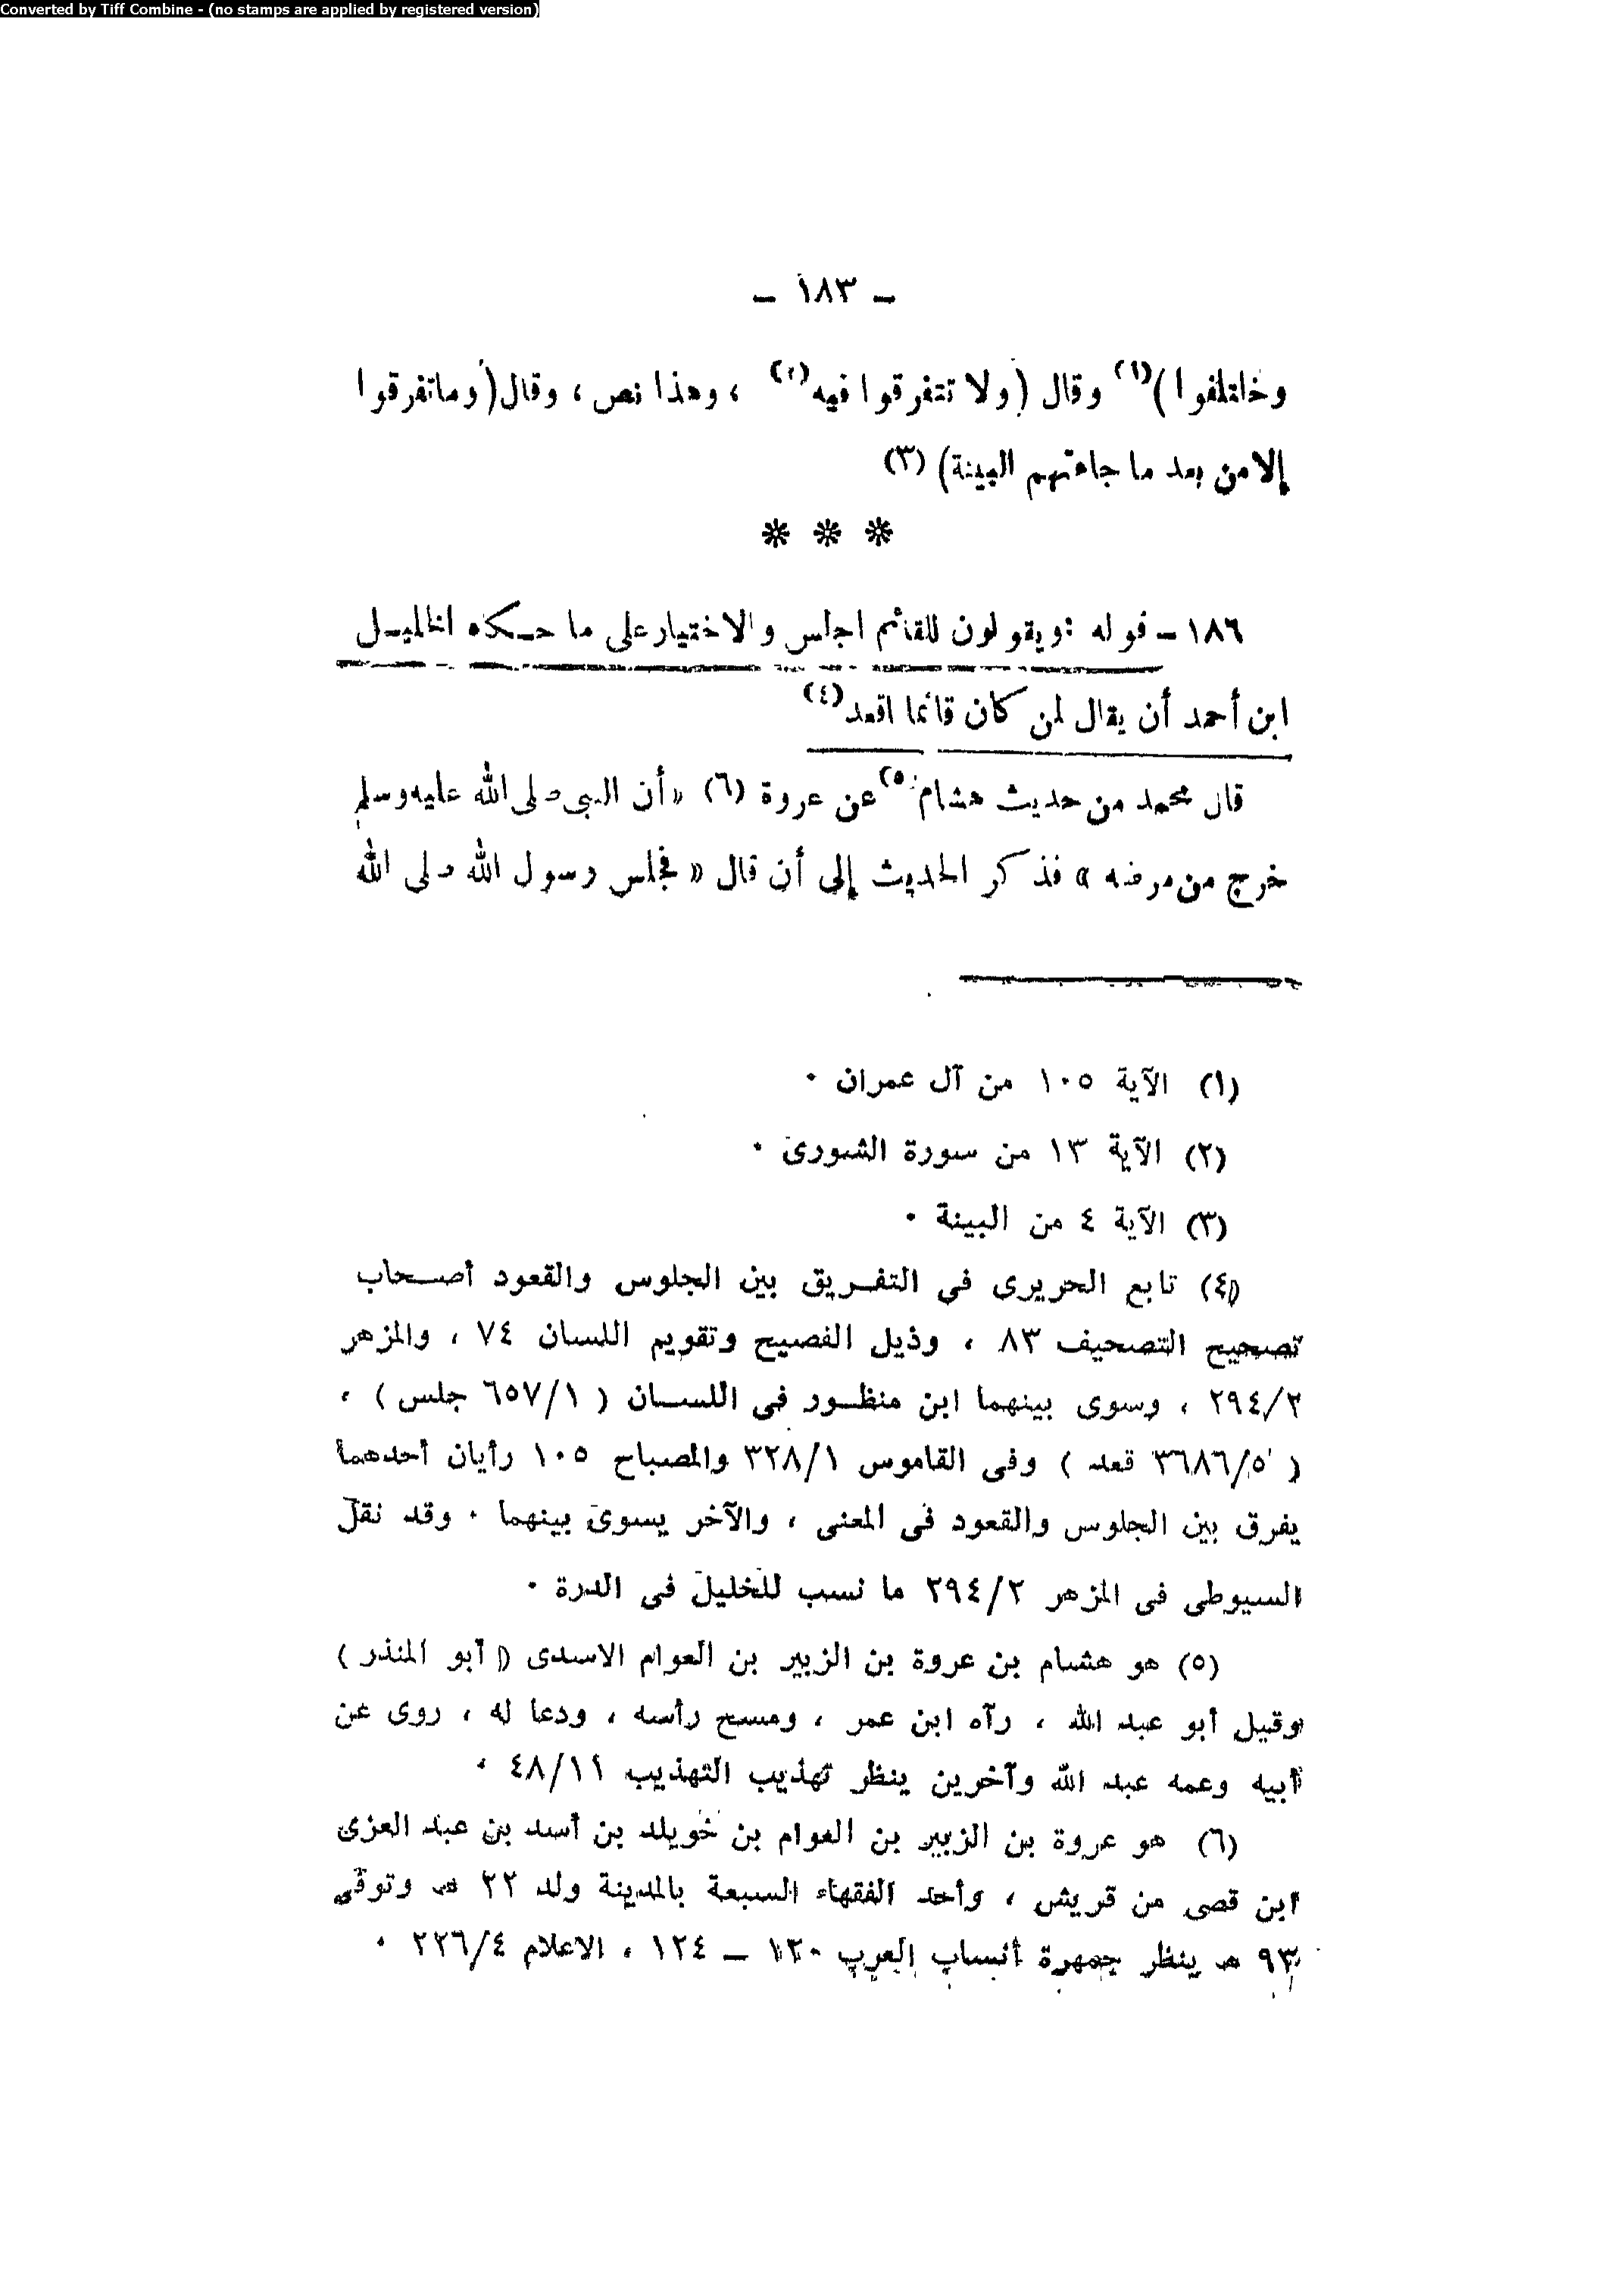 Converted by Tiff Combine - (no stamps are applied by registered version)
– ١٨٣ –
وخاتلفوا)(١) وقال (ولا تتفرقوا فيه(٢) ، وهذا نص ، وقال (وماتفرقوا
إلا من بعد ما جاءتهم البينة) (٣)
* * *
١٨٦ – قوله : ويقولون للقائم اجلس والاختيار على ما حكاه الخليل
ابن أحمد أن يقال لمن كان قائما اقعد(٤)
قال محمد من حديث هشام(٥) عن عروة (٦) «أن النبى صلى الله عليه وسلم
خرج من مرضه » فذكر الحديث إلى أن قال « فجلس رسول الله صلى الله
(١) الآية ١٠٥ من آل عمران ٠
(٢) الآية ١٣ من سورة الشورى ٠
(٣) الآية ٤ من البينة ٠
(٤) تابع الحريرى فى التفريق بين الجلوس والقعود أصحاب
تصحيح التصحيف ٨٣ ، وذيل الفصيح وتقويم اللسان ٧٤ ، والمزهر
٢٩٤/٢ ، وسوى بينهما ابن منظور فى اللسان ( ٦٥٧/١ جلس ) ،
( ٣٦٨٦/٥ قعد ) وفى القاموس ٣٢٨/١ والمصباح ١٠٥ رأيان أحدهما
يفرق بين الجلوس والقعود فى المعنى ، والآخر يسوى بينهما ٠ وقد نقل
السيوطى فى المزهر ٢٩٤/٢ ما نسب للخليل فى الدرة ٠
(٥) هو هشام بن عروة بن الزبير بن العوام الاسدى ( أبو المنذر )
وقيل أبو عبد الله ، رآه ابن عمر ، ومسح رأسه ، ودعا له ، روى عن
أبيه وعمه عبد الله وآخرين ينظر تهذيب التهذيب ٤٨/١١ ٠
(٦) هو عروة بن الزبير بن العوام بن خويلد بن أسد بن عبد العزى
ابن قصى من قريش ، وأحد الفقهاء السبعة بالمدينة ولد ٢٢ هـ وتوفى
٩٣ هـ ينظر جمهرة أنساب العرب ١٢٠ – ١٢٤ ، الاعلام ٢٢٦/٤ ٠